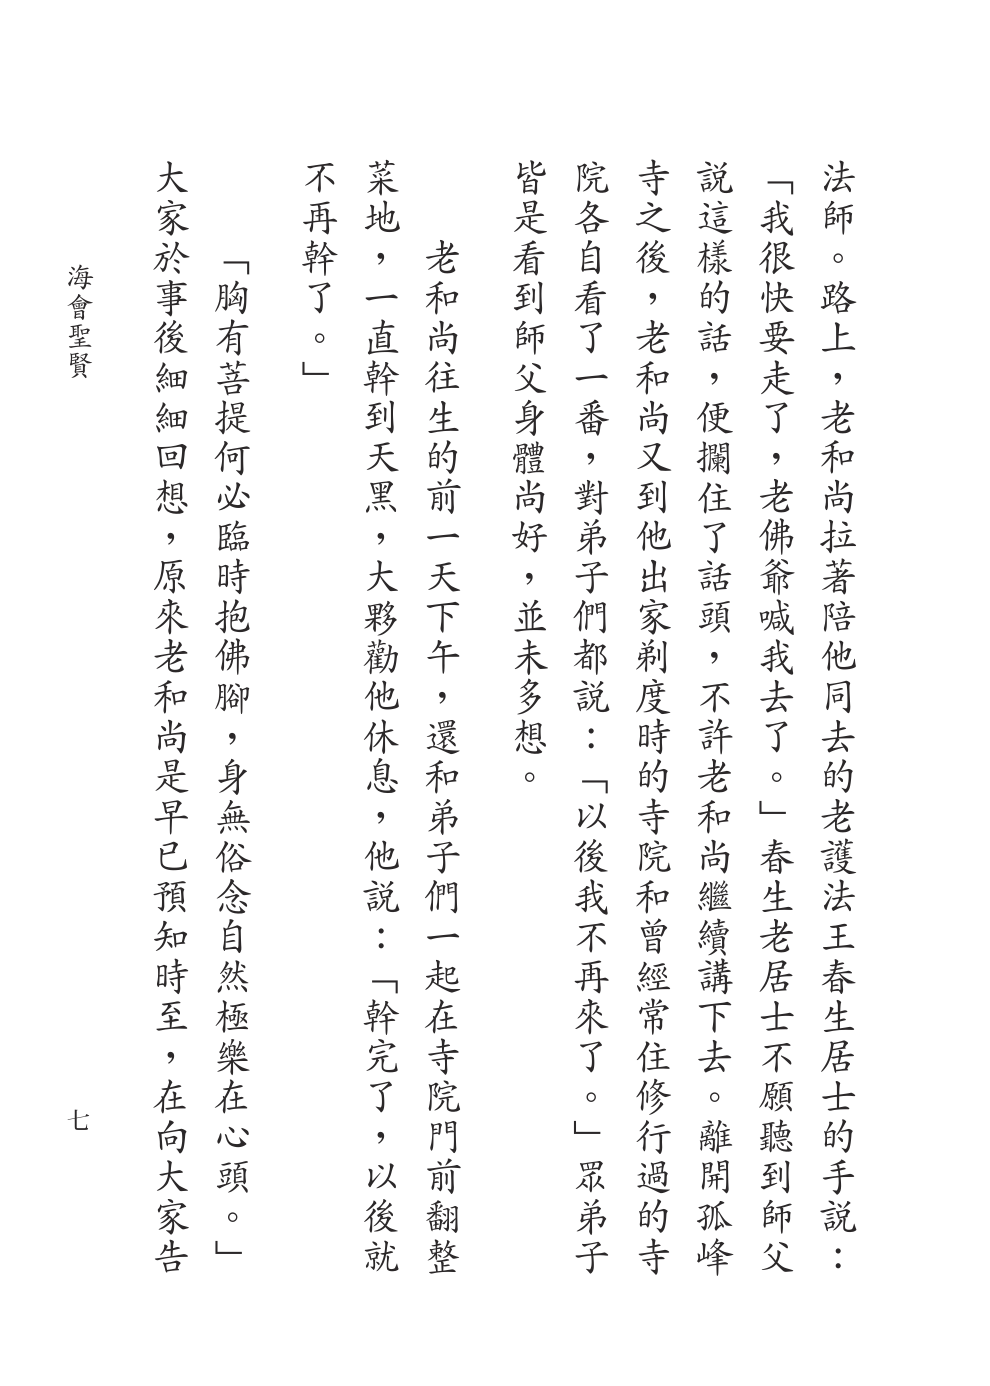 法師。路上，老和尚拉著陪他同去的老護法王春生居士的手說：
「我很快要走了，老佛爺喊我去了。」春生老居士不願聽到師父
說這樣的話，便攔住了話頭，不許老和尚繼續講下去。離開孤峰
寺之後，老和尚又到他出家剃度時的寺院和曾經常住修行過的寺
院各自看了一番，對弟子們都說：「以後我不再來了。」眾弟子
皆是看到師父身體尚好，並未多想。
老和尚往生的前一天下午，還和弟子們一起在寺院門前翻整
菜地，一直幹到天黑，大夥勸他休息，他說：「幹完了，以後就
不再幹了。」
「胸有菩提何必臨時抱佛腳，身無俗念自然極樂在心頭。」
大家於事後細細回想，原來老和尚是早已預知時至，在向大家告
海會聖賢
七